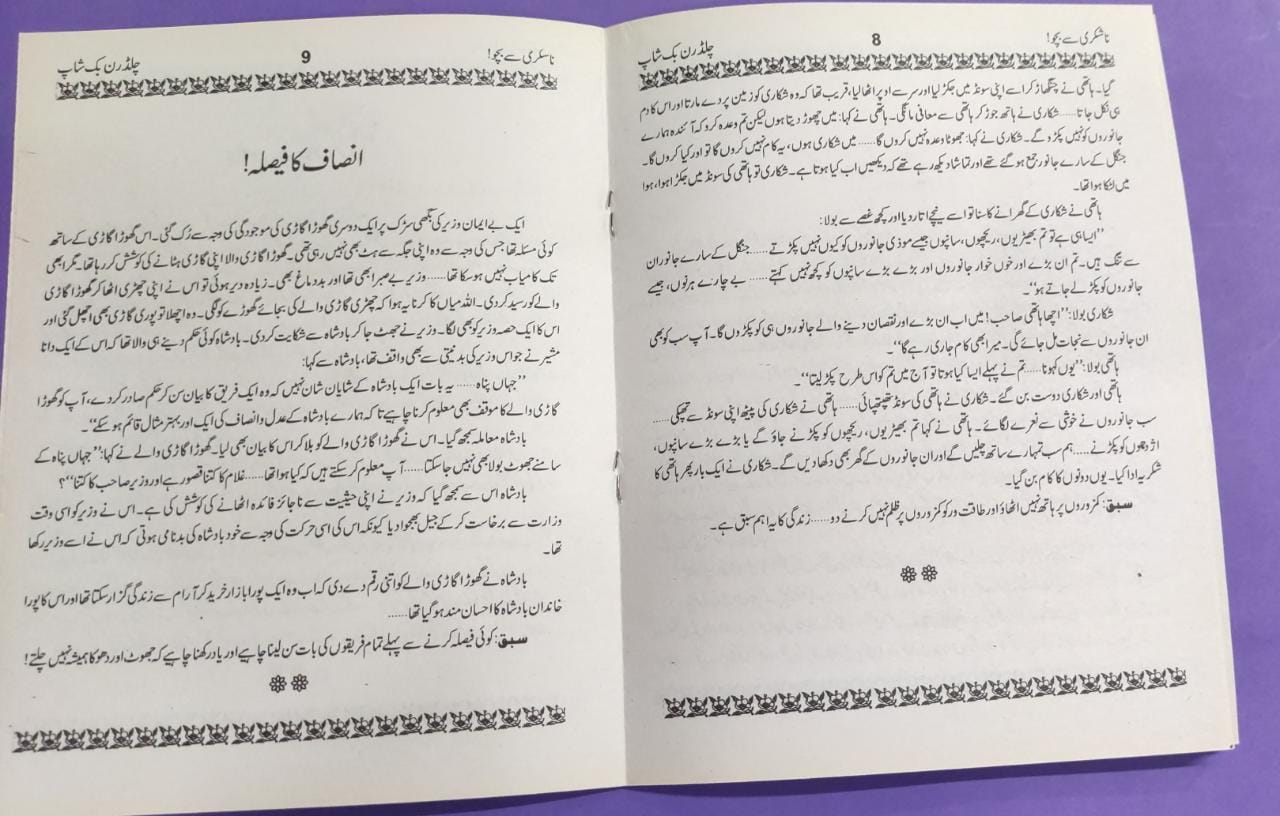 ناشکری سے بچو!
8
چلڈرن بک شاپ
گیا۔ ہاتھی نے چنگھاڑ کر اسے اپنی سونڈ میں جکڑ لیا اور سر سے اوپر اٹھا لیا، قریب تھا کہ وہ شکاری کو زمین پر دے مارتا اور اس کا دم
ہی نکل جاتا...... شکاری نے ہاتھ جوڑ کر ہاتھی سے معافی مانگی۔ ہاتھی نے کہا: میں چھوڑ دیتا ہوں لیکن تم وعدہ کرو کہ آئندہ ہمارے
جانوروں کو نہیں پکڑو گے۔ شکاری نے کہا: جھوٹا وعدہ نہیں کروں گا...... میں شکاری ہوں، یہ کام نہیں کروں گا تو اور کیا کروں گا۔
جنگل کے سارے جانور جمع ہو گئے تھے اور تماشا دیکھ رہے تھے کہ دیکھیں اب کیا ہوتا ہے۔ شکاری تو ہاتھی کی سونڈ میں جکڑا ہوا، ہوا
میں لٹکا ہوا تھا۔
ہاتھی نے شکاری کے گھرانے کا سنا تو اسے نیچے اتار دیا اور کچھ غصے سے بولا:
’’ایسا ہی ہے تو تم بھیڑیوں، ریچھوں، سانپوں جیسے موذی جانوروں کو کیوں نہیں پکڑتے...... جنگل کے سارے جانور ان
سے تنگ ہیں۔ تم ان بڑے اور خوں خوار جانوروں اور بڑے بڑے سانپوں کو کچھ نہیں کہتے...... بے چارے ہرنوں، جیسے
جانوروں کو پکڑ لے جاتے ہو‘‘۔
شکاری بولا: ’’اچھا ہاتھی صاحب! میں اب ان بڑے اور نقصان دینے والے جانوروں ہی کو پکڑوں گا۔ آپ سب کو بھی
ان جانوروں سے نجات مل جائے گی۔ میرا بھی کام جاری رہے گا‘‘۔
ہاتھی بولا: ’’یوں کہو نا...... تم نے پہلے ایسا کیا ہوتا تو آج میں تم کو اس طرح پکڑ لیتا‘‘۔
ہاتھی اور شکاری دوست بن گئے۔ شکاری نے ہاتھی کی سونڈ تھپتھپائی...... ہاتھی نے شکاری کی پیٹھ اپنی سونڈ سے تھپکی......
سب جانوروں نے خوشی سے نعرے لگائے۔ ہاتھی نے کہا تم بھیڑیوں، ریچھوں کو پکڑنے جاؤ گے یا بڑے بڑے سانپوں،
اژدھوں کو پکڑنے...... ہم سب تمہارے ساتھ چلیں گے اور ان جانوروں کے گھر بھی دکھا دیں گے۔ شکاری نے ایک بار پھر ہاتھی کا
شکریہ ادا کیا۔ یوں دونوں کا کام بن گیا۔
سبق: کمزوروں پر ہاتھ نہیں اٹھاؤ اور طاقت ور کو کمزوروں پر ظلم نہیں کرنے دو...... زندگی کا یہ اہم سبق ہے۔
ناشکری سے بچو!
9
چلڈرن بک شاپ
انصاف کا فیصلہ!
ایک بے ایمان وزیر کی بگھی سڑک پر ایک دوسری گھوڑا گاڑی کی موجودگی کی وجہ سے رُک گئی۔ اس گھوڑا گاڑی کے ساتھ
کوئی مسئلہ تھا جس کی وجہ سے وہ اپنی جگہ سے ہٹ بھی نہیں رہی تھی۔ گھوڑا گاڑی والا اپنی گاڑی ہٹانے کی کوشش کر رہا تھا۔ مگر ابھی
تک کامیاب نہیں ہو سکا تھا...... وزیر بے صبرا بھی تھا اور بد دماغ بھی۔ زیادہ دیر ہوئی تو اس نے اپنی چھڑی اٹھا کر گھوڑا گاڑی
والے کو رسید کر دی۔ اللہ میاں کا کرنا یہ ہوا کہ چھڑی گاڑی والے کی بجائے گھوڑے کو لگی۔ وہ اچھلا تو پوری گاڑی بھی اچھل گئی اور
اس کا ایک حصہ وزیر کو بھی لگا۔ وزیر نے جھٹ جا کر بادشاہ سے شکایت کر دی۔ بادشاہ کوئی حکم دینے ہی والا تھا کہ اس کے ایک دانا
مشیر نے جو اس وزیر کی بدنیتی سے بھی واقف تھا، بادشاہ سے کہا:
’’جہاں پناہ...... یہ بات ایک بادشاہ کے شایان شان نہیں کہ وہ ایک فریق کا بیان سن کر حکم صادر کر دے، آپ کو گھوڑا
گاڑی والے کا موقف بھی معلوم کرنا چاہیے تا کہ ہمارے بادشاہ کے عدل و انصاف کی ایک اور بہتر مثال قائم ہو سکے‘‘۔
بادشاہ معاملہ سمجھ گیا۔ اس نے گھوڑا گاڑی والے کو بلا کر اس کا بیان بھی لیا۔ گھوڑا گاڑی والے نے کہا: ’’جہاں پناہ کے
سامنے جھوٹ بولا بھی نہیں جا سکتا...... آپ معلوم کر سکتے ہیں کہ کیا ہوا تھا...... غلام کا کتنا قصور ہے اور وزیر صاحب کا کتنا‘‘؟
بادشاہ اس سے سمجھ گیا کہ وزیر نے اپنی حیثیت سے ناجائز فائدہ اٹھانے کی کوشش کی ہے۔ اس نے وزیر کو اسی وقت
وزارت سے برخاست کر کے جیل بھجوا دیا کیونکہ اس کی اسی حرکت کی وجہ سے خود بادشاہ کی بدنامی ہوتی کہ اس نے اسے وزیر رکھا
تھا۔
بادشاہ نے گھوڑا گاڑی والے کو اتنی رقم دے دی کہ اب وہ ایک پورا بازار خرید کر آرام سے زندگی گزار سکتا تھا اور اس کا پورا
خاندان بادشاہ کا احسان مند ہو گیا تھا......
سبق: کوئی فیصلہ کرنے سے پہلے تمام فریقوں کی بات سن لینا چاہیے اور یاد رکھنا چاہیے کہ جھوٹ اور دھوکا ہمیشہ نہیں چلتے!